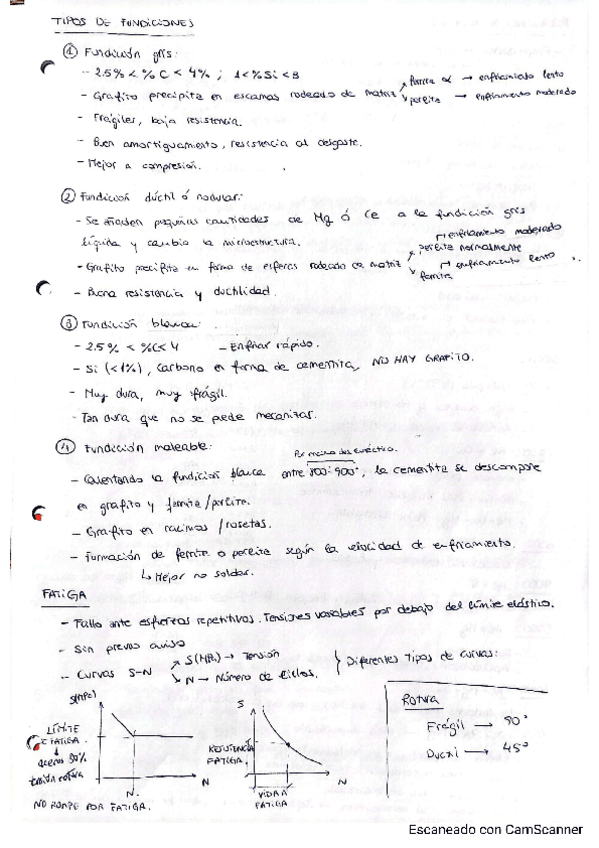 TIPOS DE FUNDICIONES
① Fundición gris:
- 2.5% < % C < 4% ; 1 < % Si < 3
- Grafito precipita en escamas rodeado de matriz ferrita α → enfriamiento lento
perlita → enfriamiento moderado
- Frágiles, baja resistencia.
- Buen amortiguamiento, resistencia al desgaste.
- Mejor a compresión.
② Fundición dúctil ó nodular:
- Se añaden pequeñas cantidades de Mg ó Ce a la fundición gris
líquida y cambia la microestructura.
→ enfriamiento moderado
perlita normalmente
- Grafito precipita en forma de esferas rodeado de matriz
→ enfriamiento lento
ferrita
- Buena resistencia y ductilidad.
③ Fundición blanca:
- 2.5% < %C < 4 - Enfriar rápido.
- Si (<1%), carbono en forma de cementita, NO HAY GRAFITO.
- Muy dura, muy frágil.
- Tan dura que no se puede mecanizar.
④ Fundición maleable:
Por encima del eutéctico.
- Calentando la fundición blanca entre 800-900°, la cementita se descompone
en grafito y ferrita/perlita.
- Grafito en racimos / rosetas.
- Formación de ferrita o perlita según la velocidad de enfriamiento.
↳ Mejor no soldar.
FATIGA
- Fallo ante esfuerzos repetitivos. Tensiones variables por debajo del límite elástico.
- Sin previo aviso
- Curvas S-N
S(MPa) → Tensión
N → Número de ciclos.
Diferentes tipos de curvas:
S(MPa)
LÍMITE
FATIGA
N
N
NO ROMPE POR FATIGA.
S
RESISTENCIA
FATIGA.
N
VIDA A
FATIGA
Rotura
Frágil → 90°
Ductil → 45°
Escaneado con CamScanner